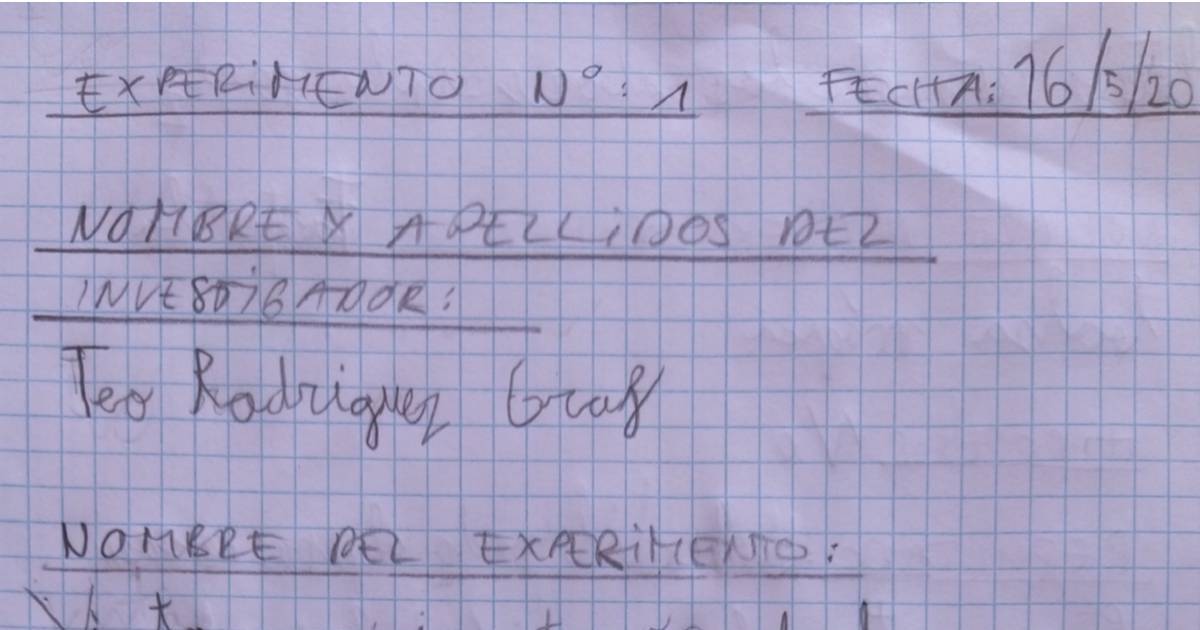 EXPERIMENTO Nº: 1 FECHA: 16/5/20
NOMBRE Y APELLIDOS DEL
INVESTIGADOR:
Teo Rodriguez Graf
NOMBRE DEL EXPERIMENTO: